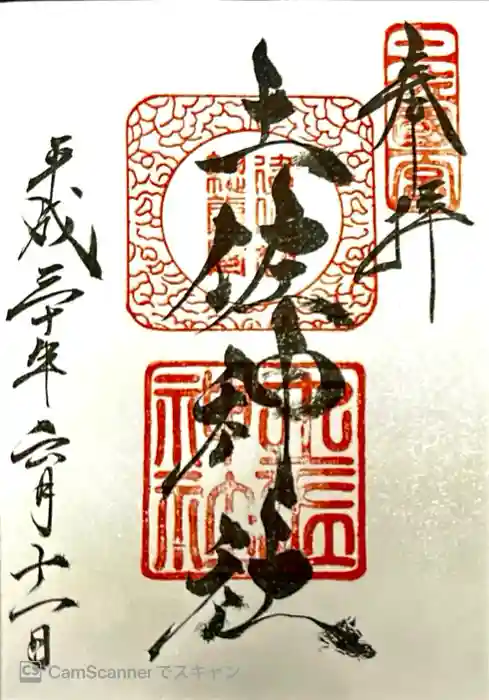 奉拝
土佐神社
平成三十年六月十一日
CS CamScannerでスキャン